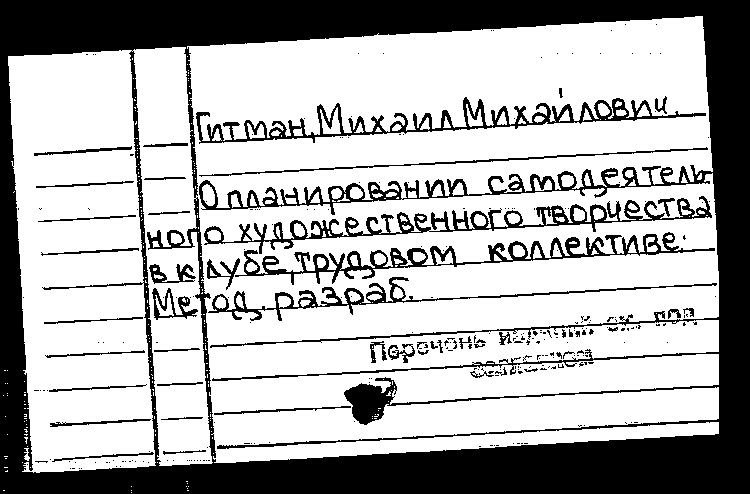 Гитман, Михаил Михайлович.
О планировании самодеятель-
ного художественного творчества
в клубе, трудовом коллективе:
Метод. разраб.
Перечень изданий см. под